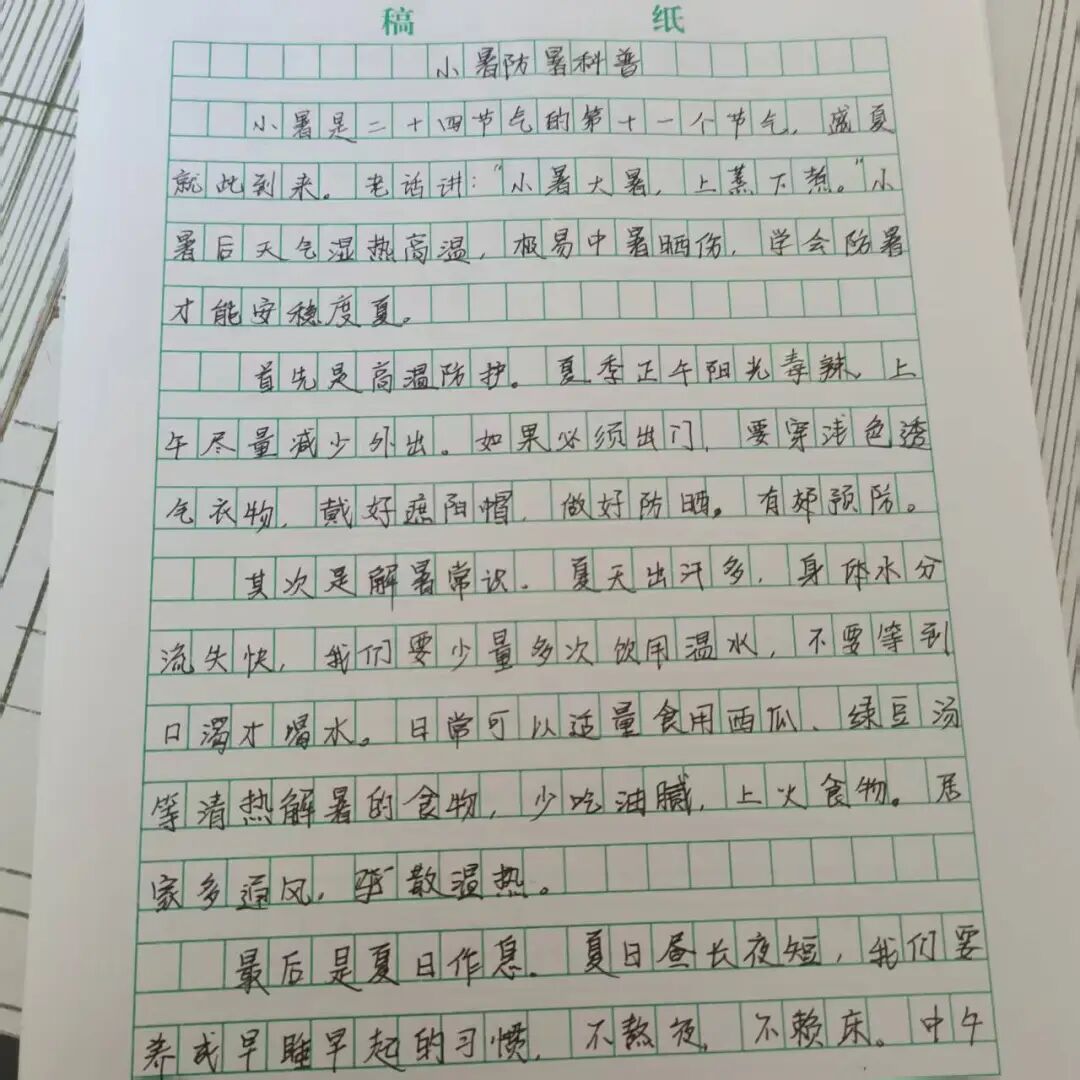 稿 纸
小暑防暑科普
小暑是二十四节气的第十一个节气，盛夏
就此到来。老话讲：“小暑大暑，上蒸下煮。”小
暑后天气湿热高温，极易中暑晒伤，学会防暑
才能安稳度夏。
首先是高温防护。夏季正午阳光毒辣，上
午尽量减少外出。如果必须出门，要穿浅色透
气衣物，戴好遮阳帽，做好防晒。有效预防。
其次是解暑常识。夏天出汗多，身体水分
流失快，我们要少量多次饮用温水，不要等到
口渴才喝水。日常可以适量食用西瓜、绿豆汤
等清热解暑的食物，少吃油腻，上火食物。居
家多通风，散湿热。
最后是夏日作息。夏日昼长夜短，我们要
养成早睡早起的习惯，不熬夜，不赖床。中午